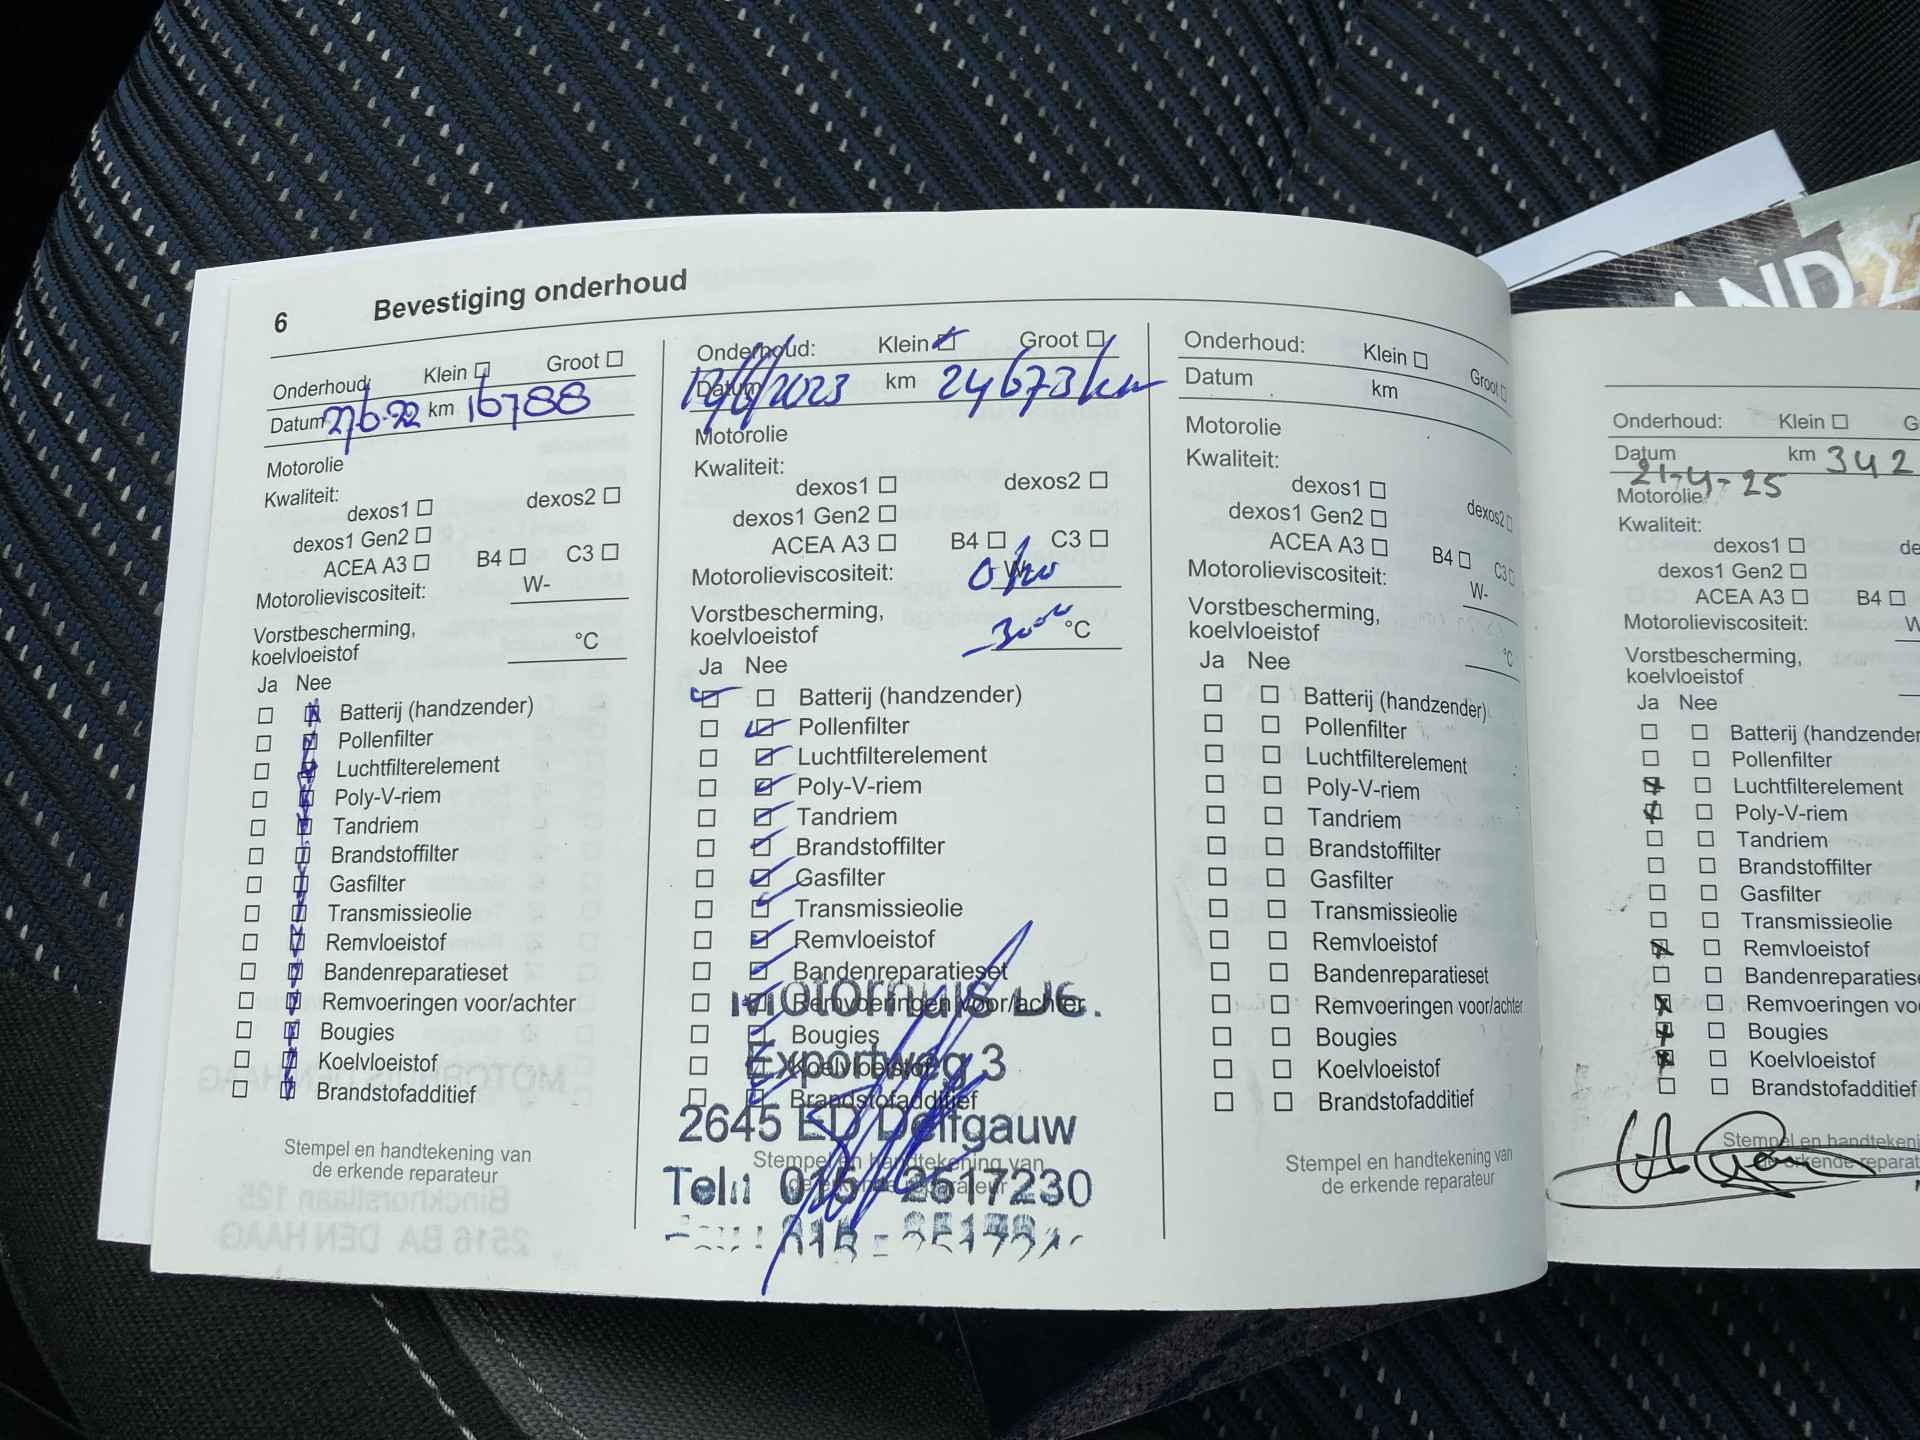 6 Bevestiging onderhoud
Onderhoud: Klein Groot
Datum 27/6-22 km 16788
Motorolie
Kwaliteit:
dexos1 dexos2
dexos1 Gen2
ACEA A3 B4 C3
Motorolieviscositeit: W-
Vorstbescherming,
koelvloeistof °C
Ja Nee
Batterij (handzender)
Pollenfilter
Luchtfilterelement
Poly-V-riem
Tandriem
Brandstoffilter
Gasfilter
Transmissieolie
Remvloeistof
Bandenreparatieset
Remvoeringen voor/achter
Bougies
Koelvloeistof
Brandstofadditief
Stempel en handtekening van
de erkende reparateur
Onderhoud: Klein Groot
Datum /2023 km 24673 km
Motorolie
Kwaliteit:
dexos1 dexos2
dexos1 Gen2
ACEA A3 B4 C3
Motorolieviscositeit: W-
Vorstbescherming,
koelvloeistof °C
Ja Nee
Batterij (handzender)
Pollenfilter
Luchtfilterelement
Poly-V-riem
Tandriem
Brandstoffilter
Gasfilter
Transmissieolie
Remvloeistof
Bandenreparatieset
Remvoeringen voor/achter
Motorhuis
Bougies
Exportweg 3
Koelvloeistof
Brandstofadditief
2645 ED Delfgauw
Stempel en handtekening van
Tel.: 015 - 2617230
de erkende reparateur
Onderhoud: Klein Groot
Datum km
Motorolie
Kwaliteit:
dexos1 dexos2
dexos1 Gen2
ACEA A3 B4 C3
Motorolieviscositeit: W-
Vorstbescherming,
koelvloeistof °C
Ja Nee
Batterij (handzender)
Pollenfilter
Luchtfilterelement
Poly-V-riem
Tandriem
Brandstoffilter
Gasfilter
Transmissieolie
Remvloeistof
Bandenreparatieset
Remvoeringen voor/achter
Bougies
Koelvloeistof
Brandstofadditief
Stempel en handtekening van
de erkende reparateur
Onderhoud: Klein G
Datum km 342
21-4-25
Motorolie
Kwaliteit:
dexos1 de
dexos1 Gen2
ACEA A3 B4
Motorolieviscositeit: W
Vorstbescherming,
koelvloeistof
Ja Nee
Batterij (handzender
Pollenfilter
Luchtfilterelement
Poly-V-riem
Tandriem
Brandstoffilter
Gasfilter
Transmissieolie
Remvloeistof
Bandenreparatiese
Remvoeringen vo
Bougies
Koelvloeistof
Brandstofadditief
Stempel en handtekeni
de erkende reparat
AND 2